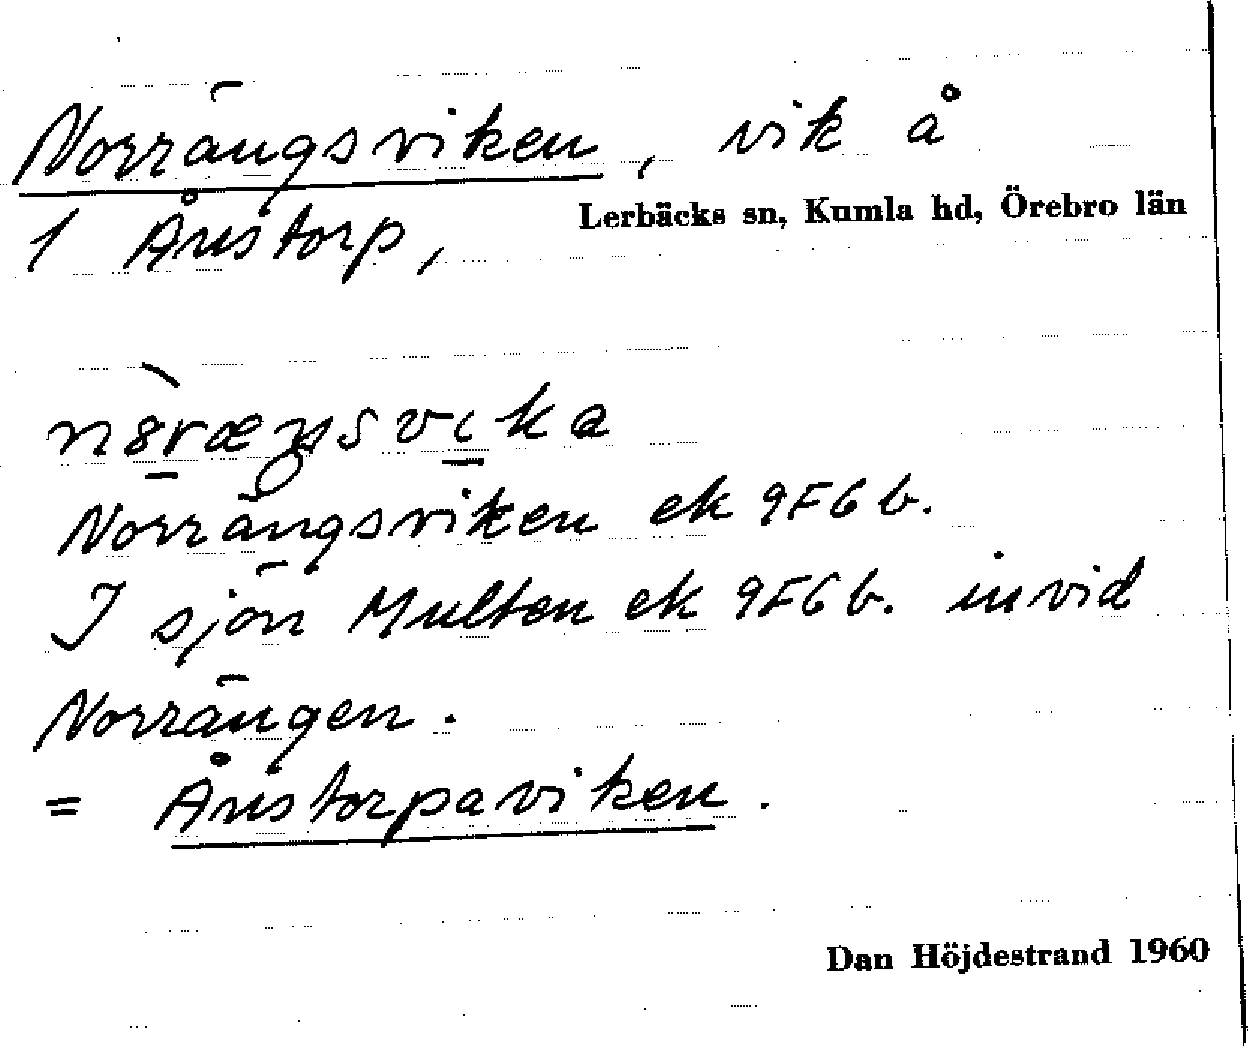 Norrängsviken, vik å
1 Åvistorp,
Lerbäcks sn, Kumla hd, Örebro län
Norrängsviken ek 9F6b.
I sjön Multen ek 9F6b. invid
Norrängen.
= Åvistorpaviken.
Dan Höjdestrand 1960